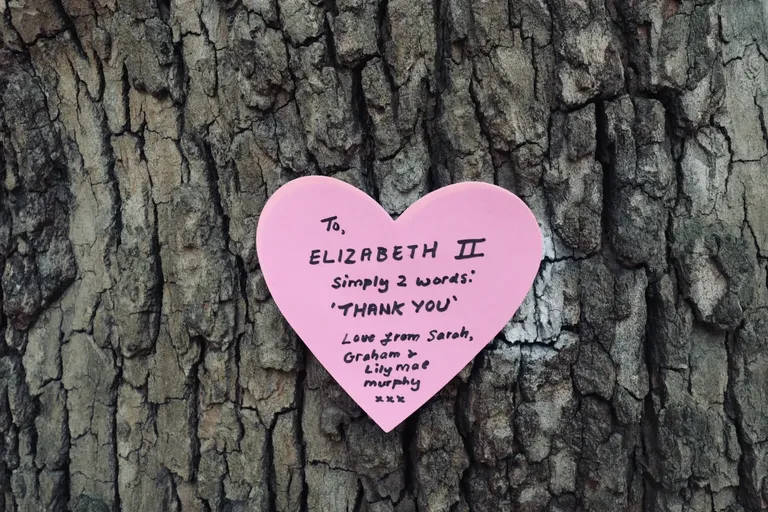 To,
ELIZABETH II
Simply 2 words:
'THANK YOU'
Love from Sarah,
Graham &
Lily mae
murphy
xxx